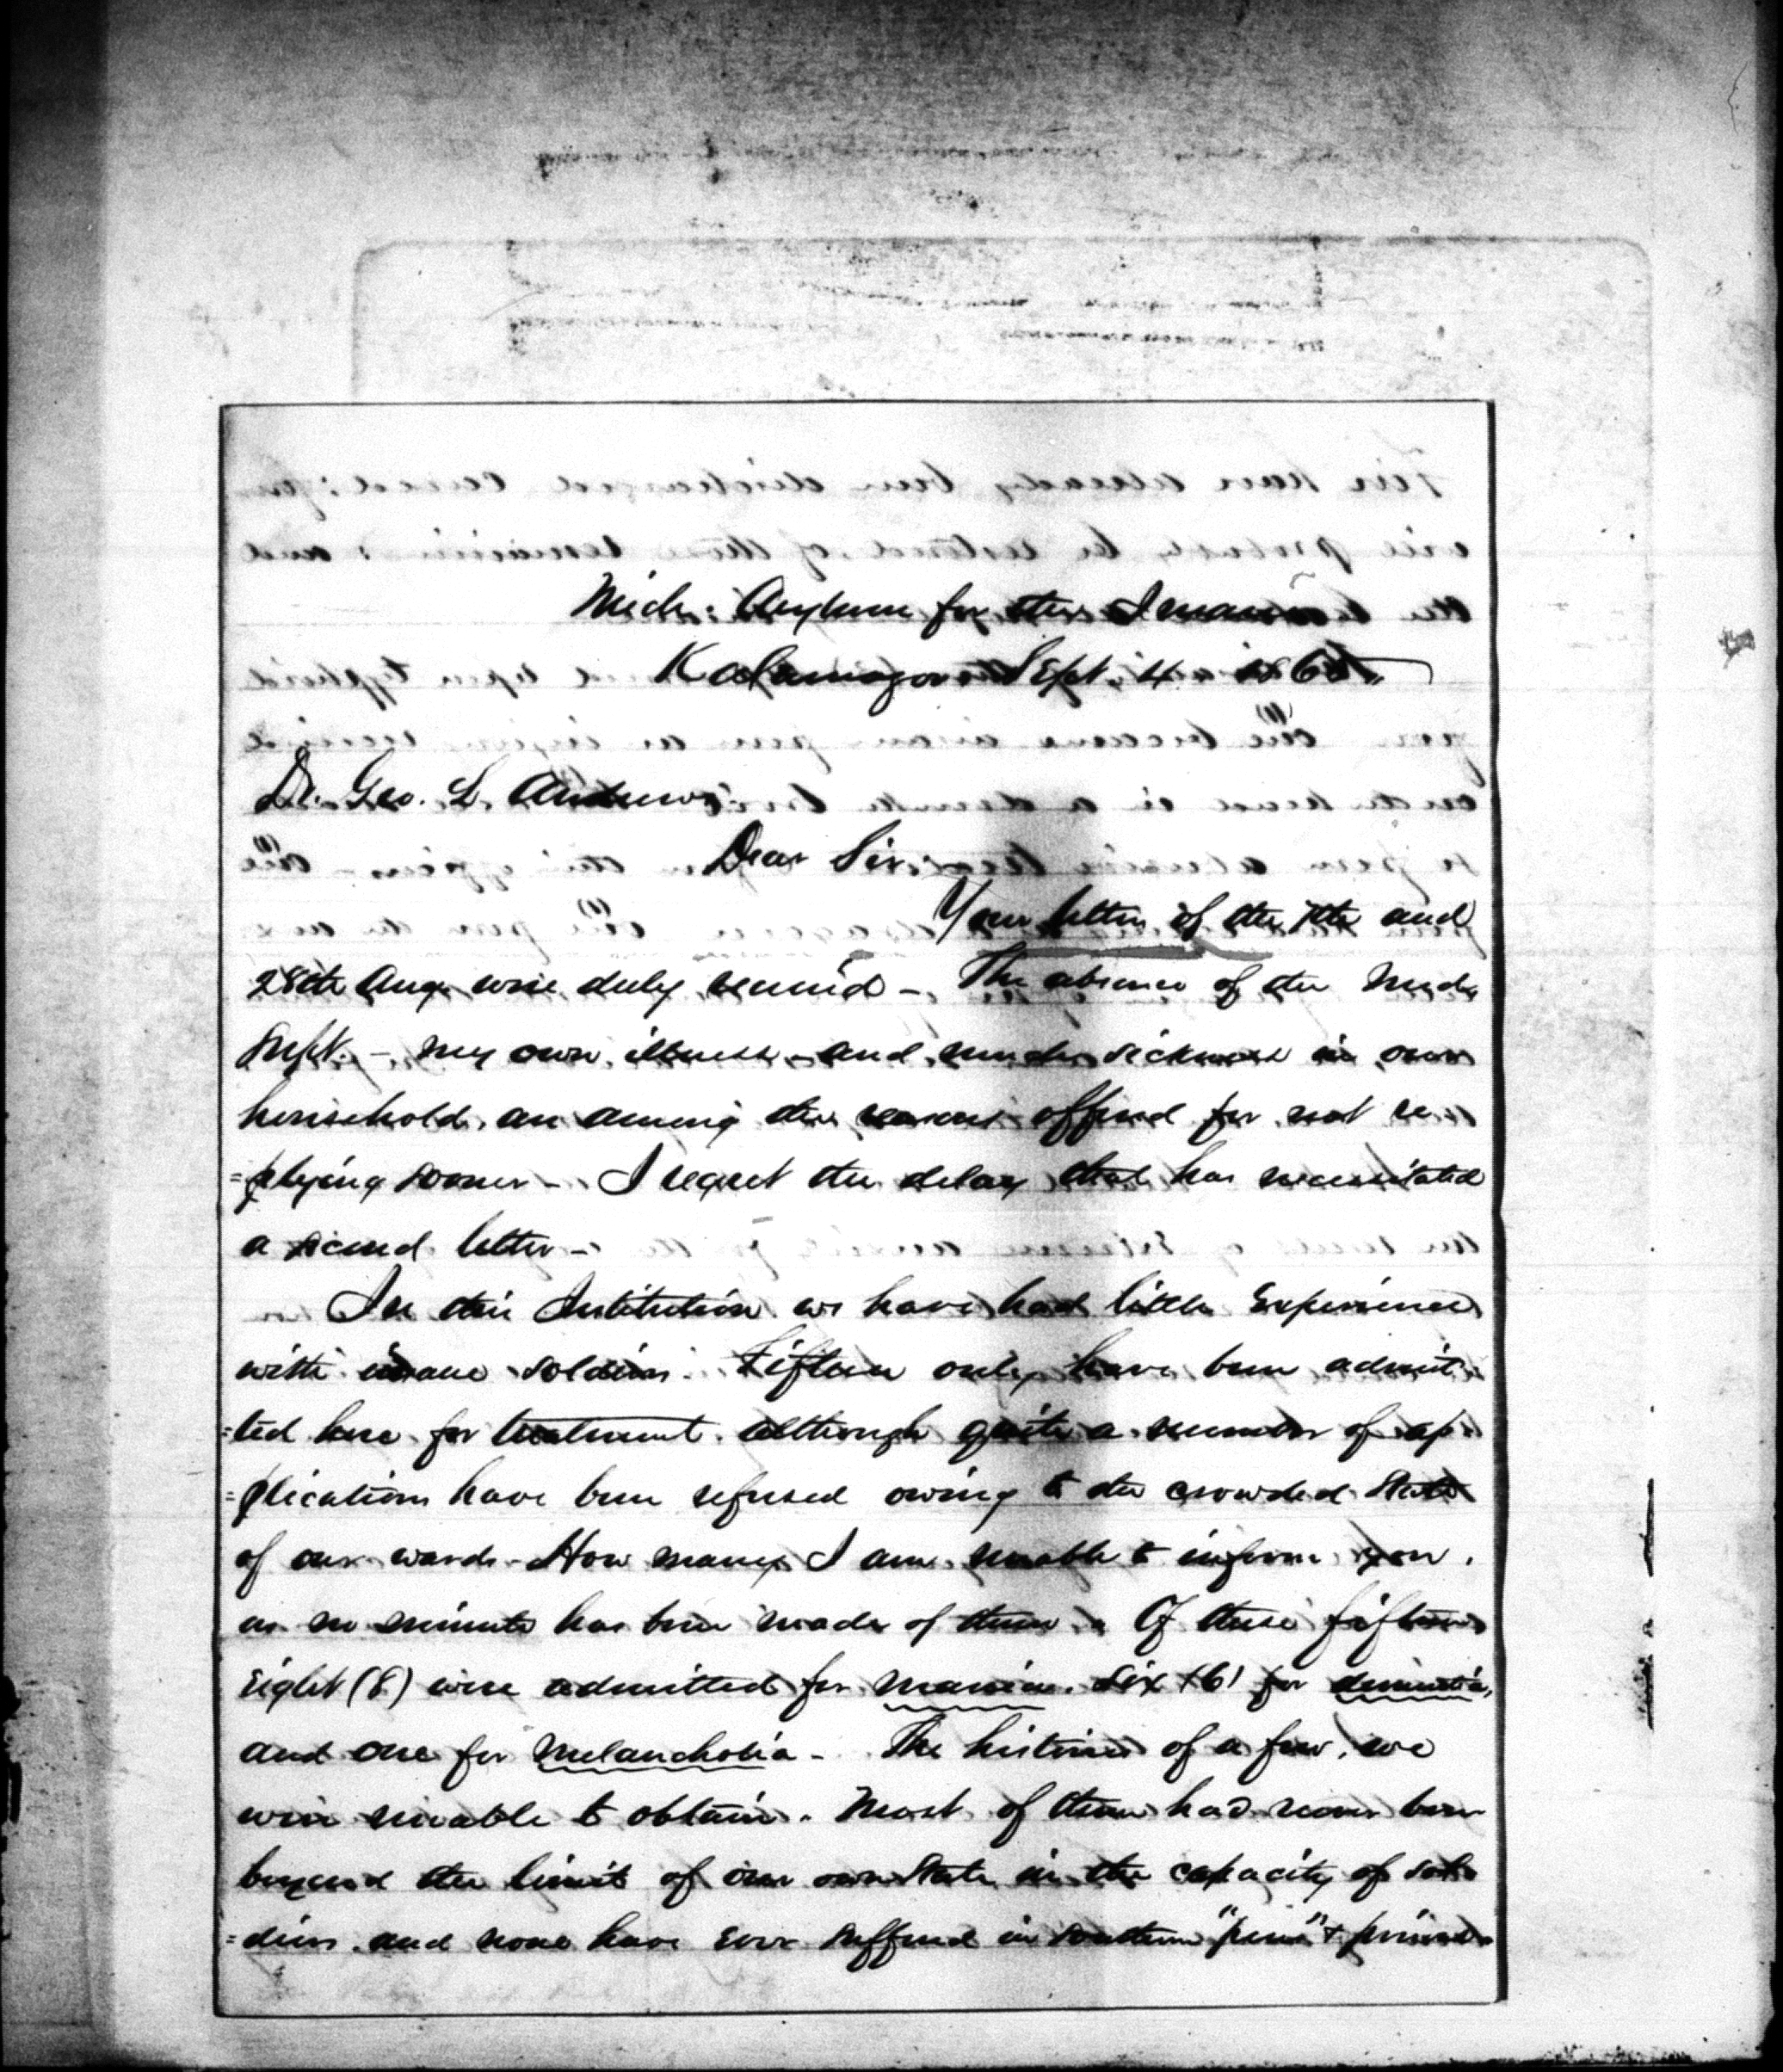 Mich: Asylum for the Insane
Kalamazoo Sept. 4 1865
Dr. Geo. L. Andrew
Dear Sir
Your letters of the 7th and
28th Aug. were duly received - The absence of the Med.
Supt. - my own illness - and much sickness in our
household are among the reasons offered for not re
=plying sooner - I regret the delay that has necessitated
a second letter -
In this Institution we have had little experience
with insane soldiers. Fifteen only have been admit
=ted here for treatment. although quite a number of ap
=plications have been refused owing to the crowded State
of our wards - How many I am unable to inform you,
as no minute has been made of them. Of these fifteen
Eight (8) were admitted for mania. Six (6) for dementia,
and one for Melancholia - The histories of a few, we
were unable to obtain. Most of them had never been
beyond the limits of our own State in the capacity of sol
=diers. and none have ever suffered in Southern "pens" & prisons